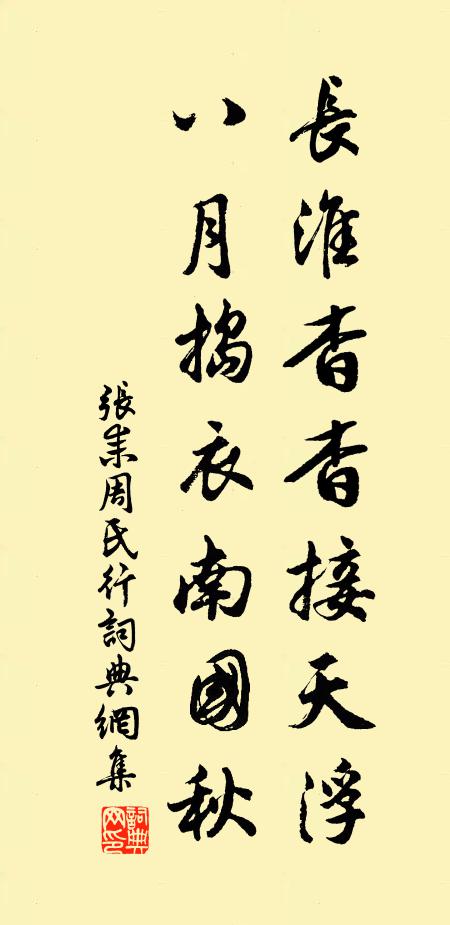 長淮杳杳接天浮
八月搗衣南國秋
張耒周氏行詞典網集
詞典网印